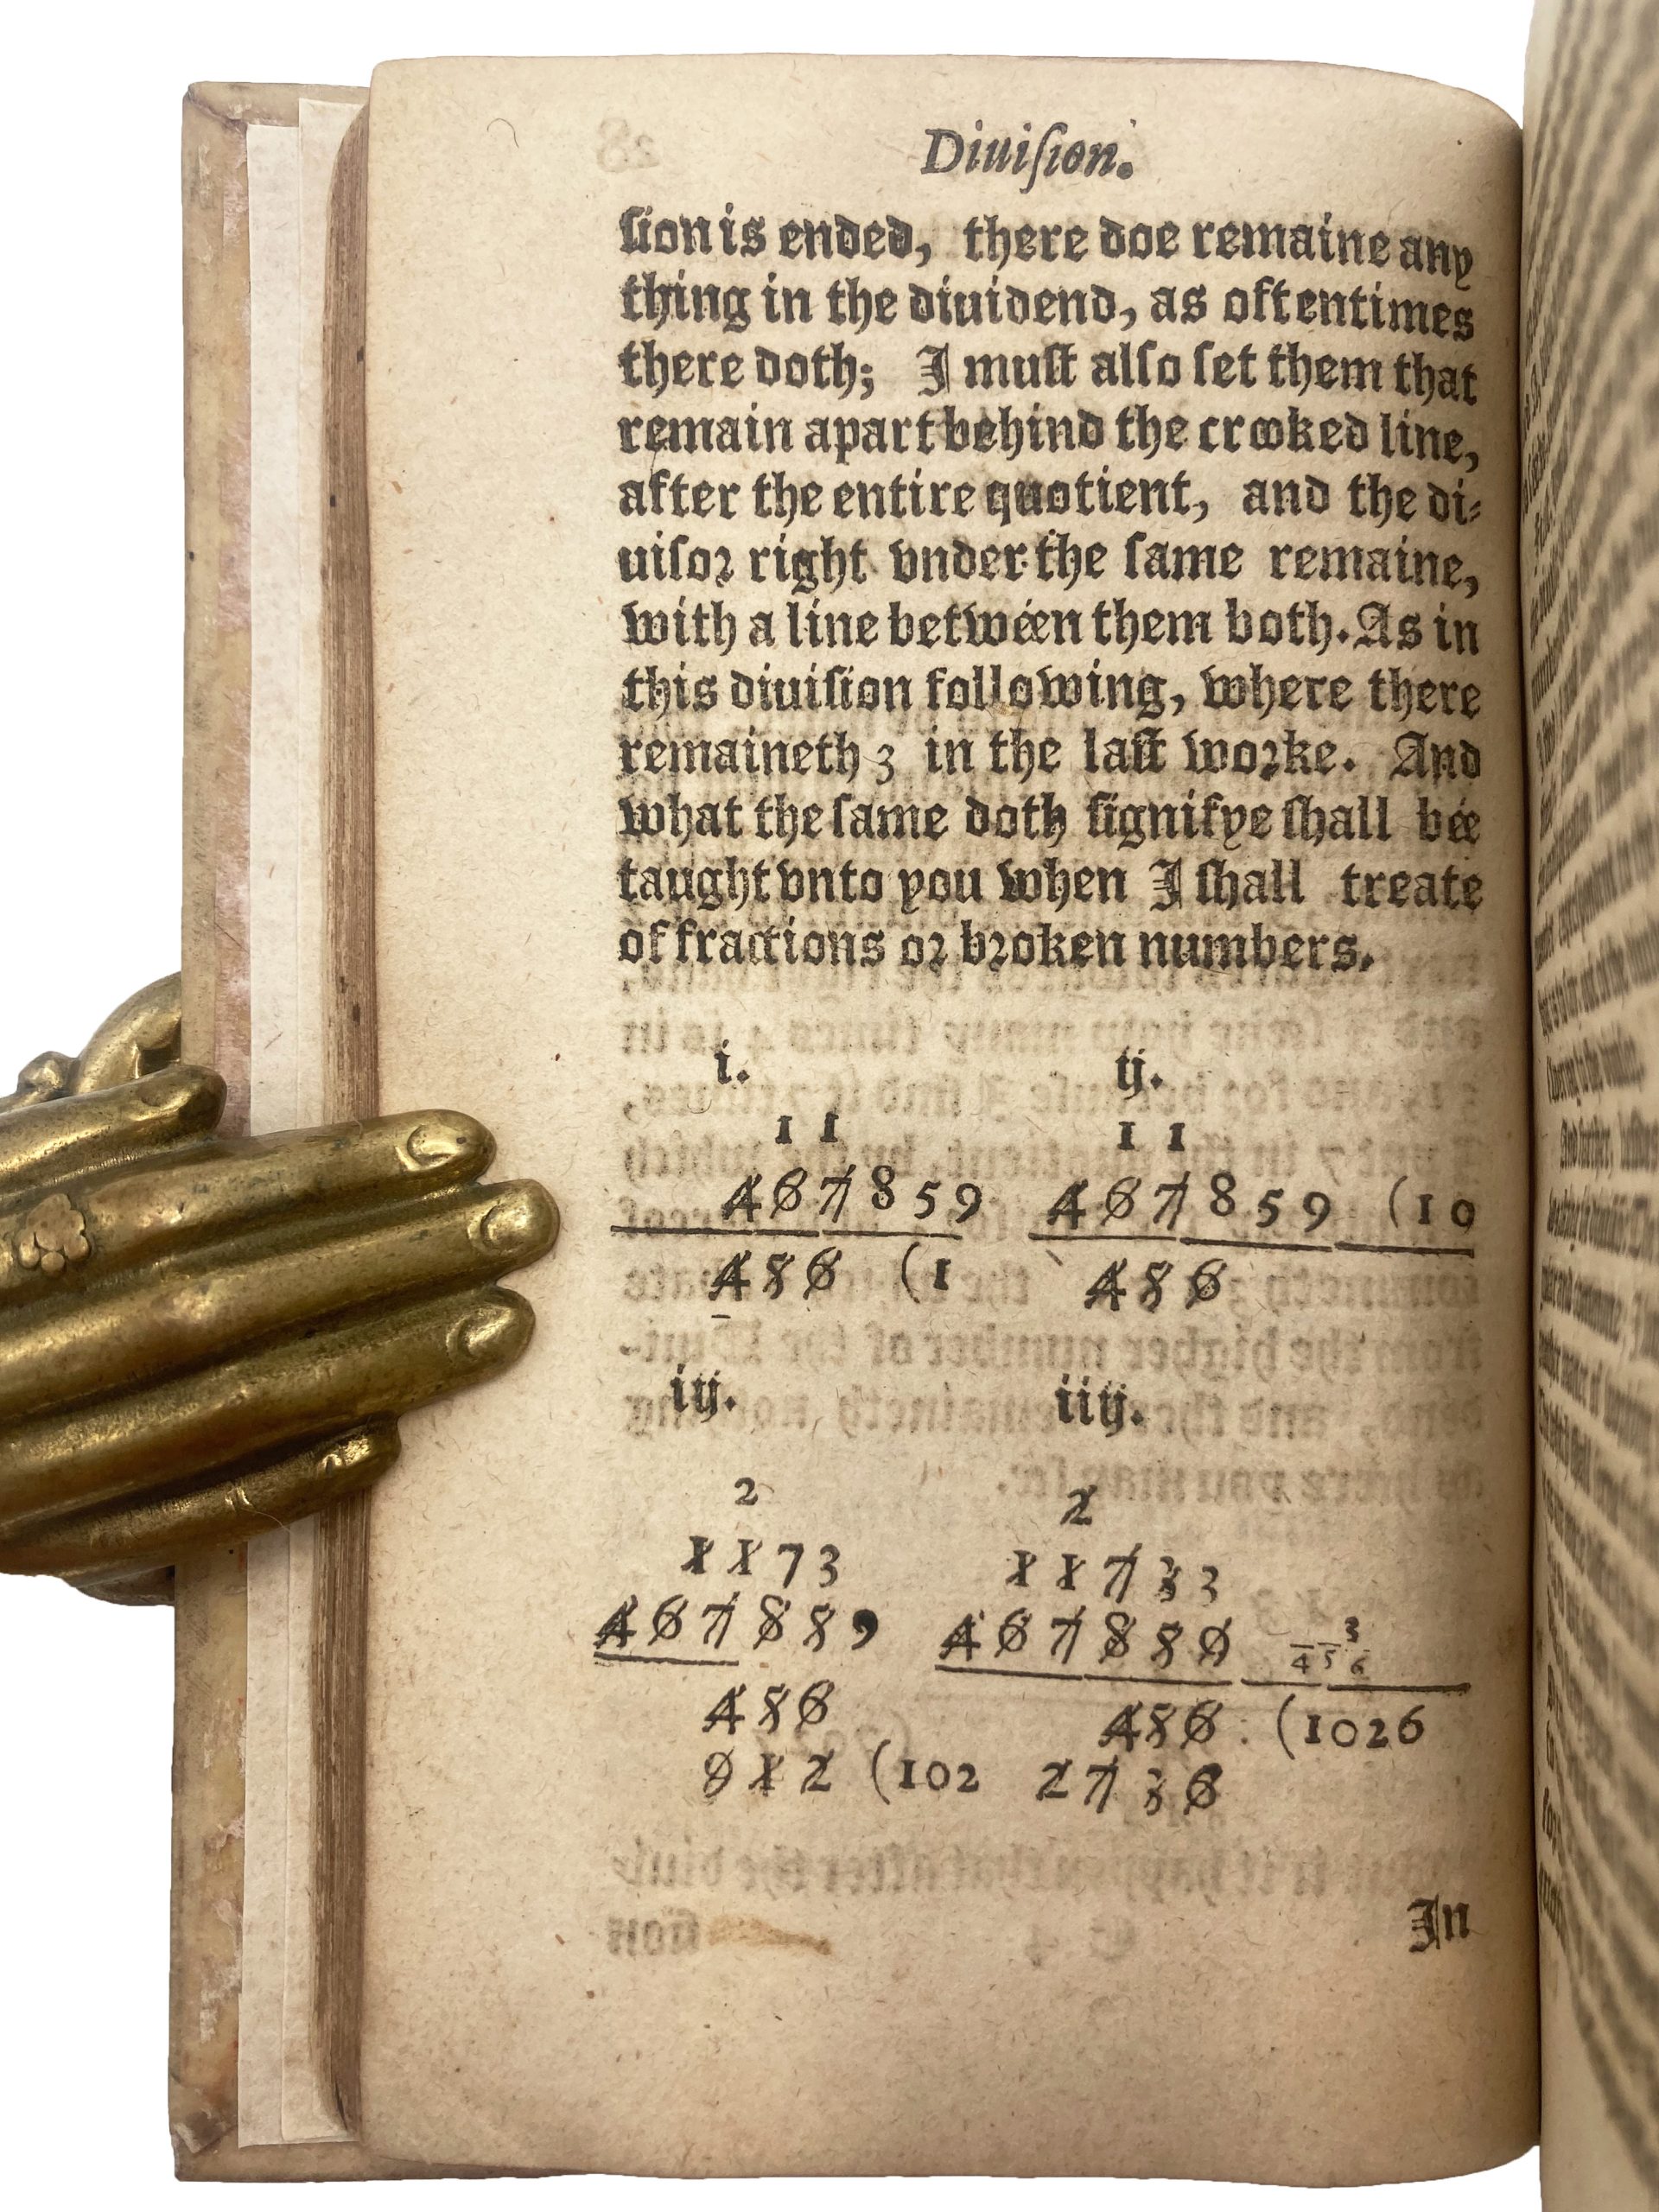 Diuiſion.
ſion is ended, there doe remaine any
thing in the diuidend, as oftentimes
there doth; I muſt alſo ſet them that
remain apart behind the crooked line,
after the entire quotient, and the di-
uiſor right vnder the ſame remaine,
with a line betwéen them both. As in
this diuiſion following, where there
remaineth 3 in the laſt worke. And
what the ſame doth ſignifye ſhall bée
taught vnto you when I ſhall treate
of fractions or broken numbers.
i. ij.
1 1 1 1
467859 467859 (10
456 (1 456
iij. iiij.
2 2
1173 11733
46785, 467859 3
456
456 456 (1026
912 (102 2736
In